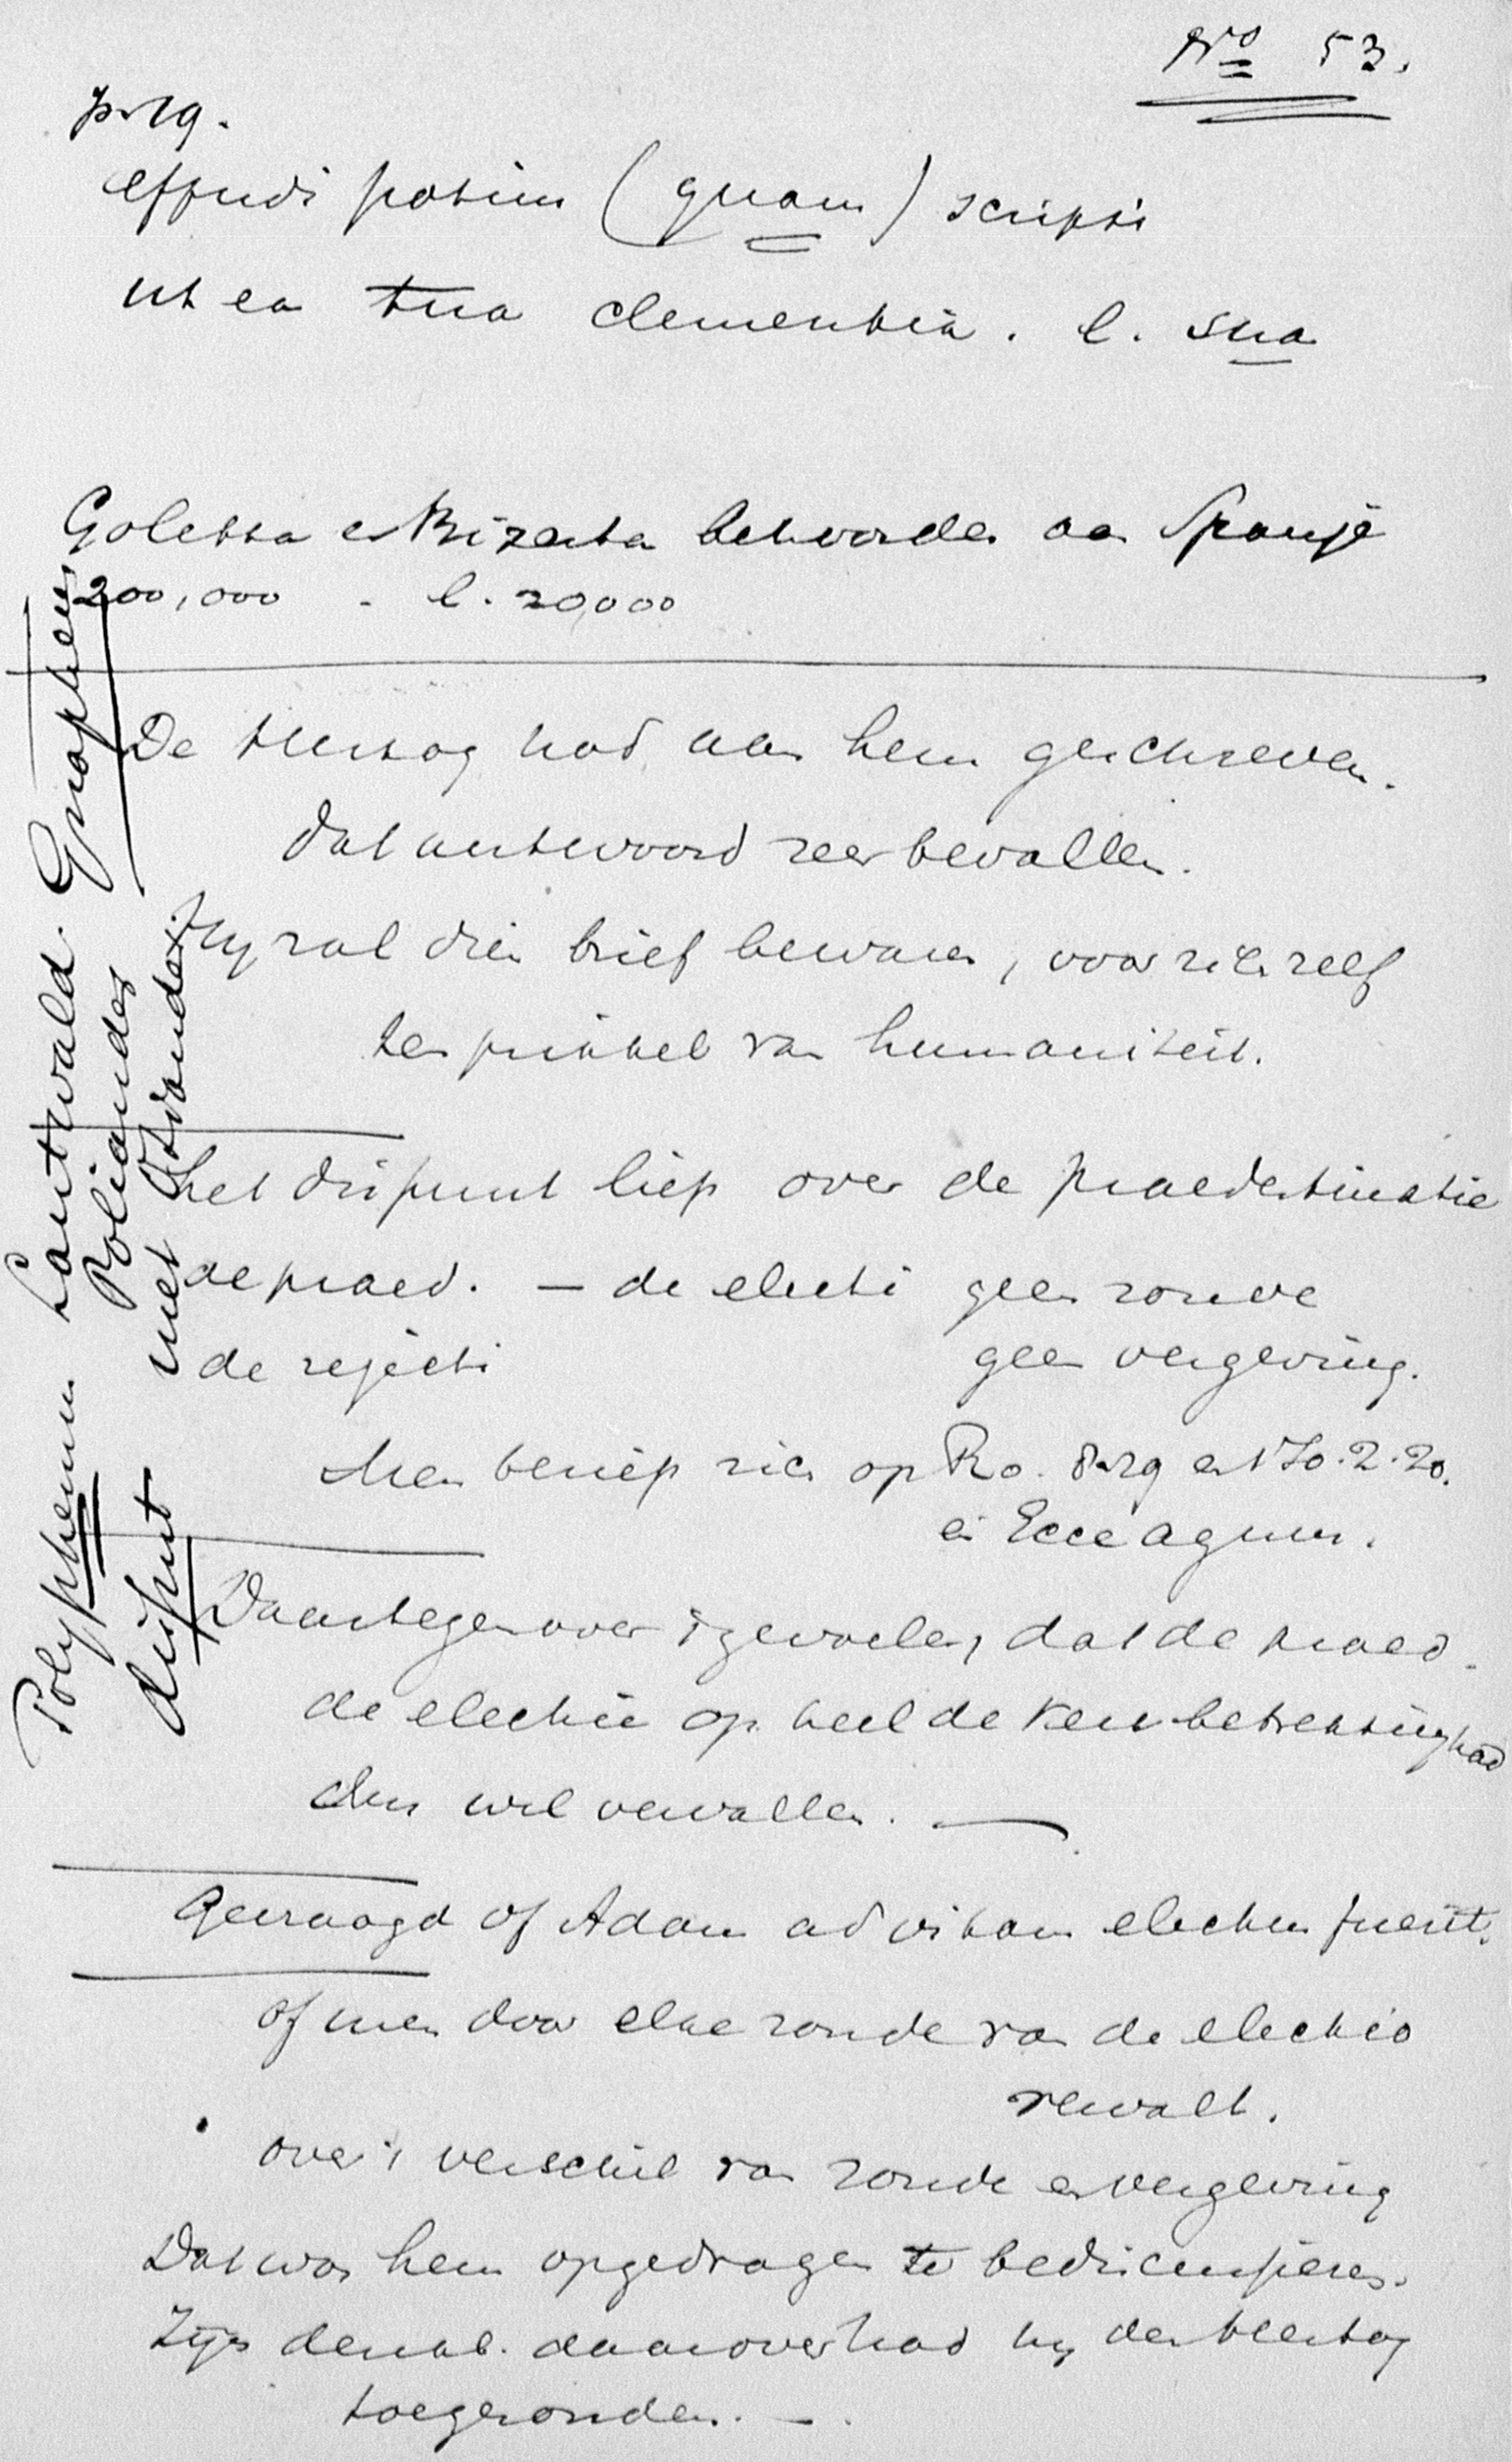 No 53.
p. 19.
effudi potius (quam) scripsi
ut ea tua clementia. l. sua
Goletta en Bizerta behoorden aan Spanje
200,000 - l. 20,000
De Hertog had aan hem geschreven.
dat antwoord zeer bevallen.
Hij zal dien brief bewaren, voor zich zelf
ten prikkel van humaniteit.
het dispuut liep over de praedestinatie
de praed. — de electi geen zonde
de rejecti geen vergeving.
Men beriep zich op Ro. 8.29 en 1 Jo. 2.20.
en Ecce agnus.
Daartegenover 't gevoelen, dat de praed.
de electie op heel de Kerk betrekking had
Men wil vervallen. —
Gevraagd of Adam ad vitam electus fuerit.
of men door elke zonde van de electio
vervalt.
over 't verschil van zonde en vergeving
Dat was hem opgedragen te bediscussieren.
Zijn denkb. daarover had hij den Hertog
toegezonden. —.
Polyphemus Lantwald. Grapheus
Poliander
dispuut met Osiander